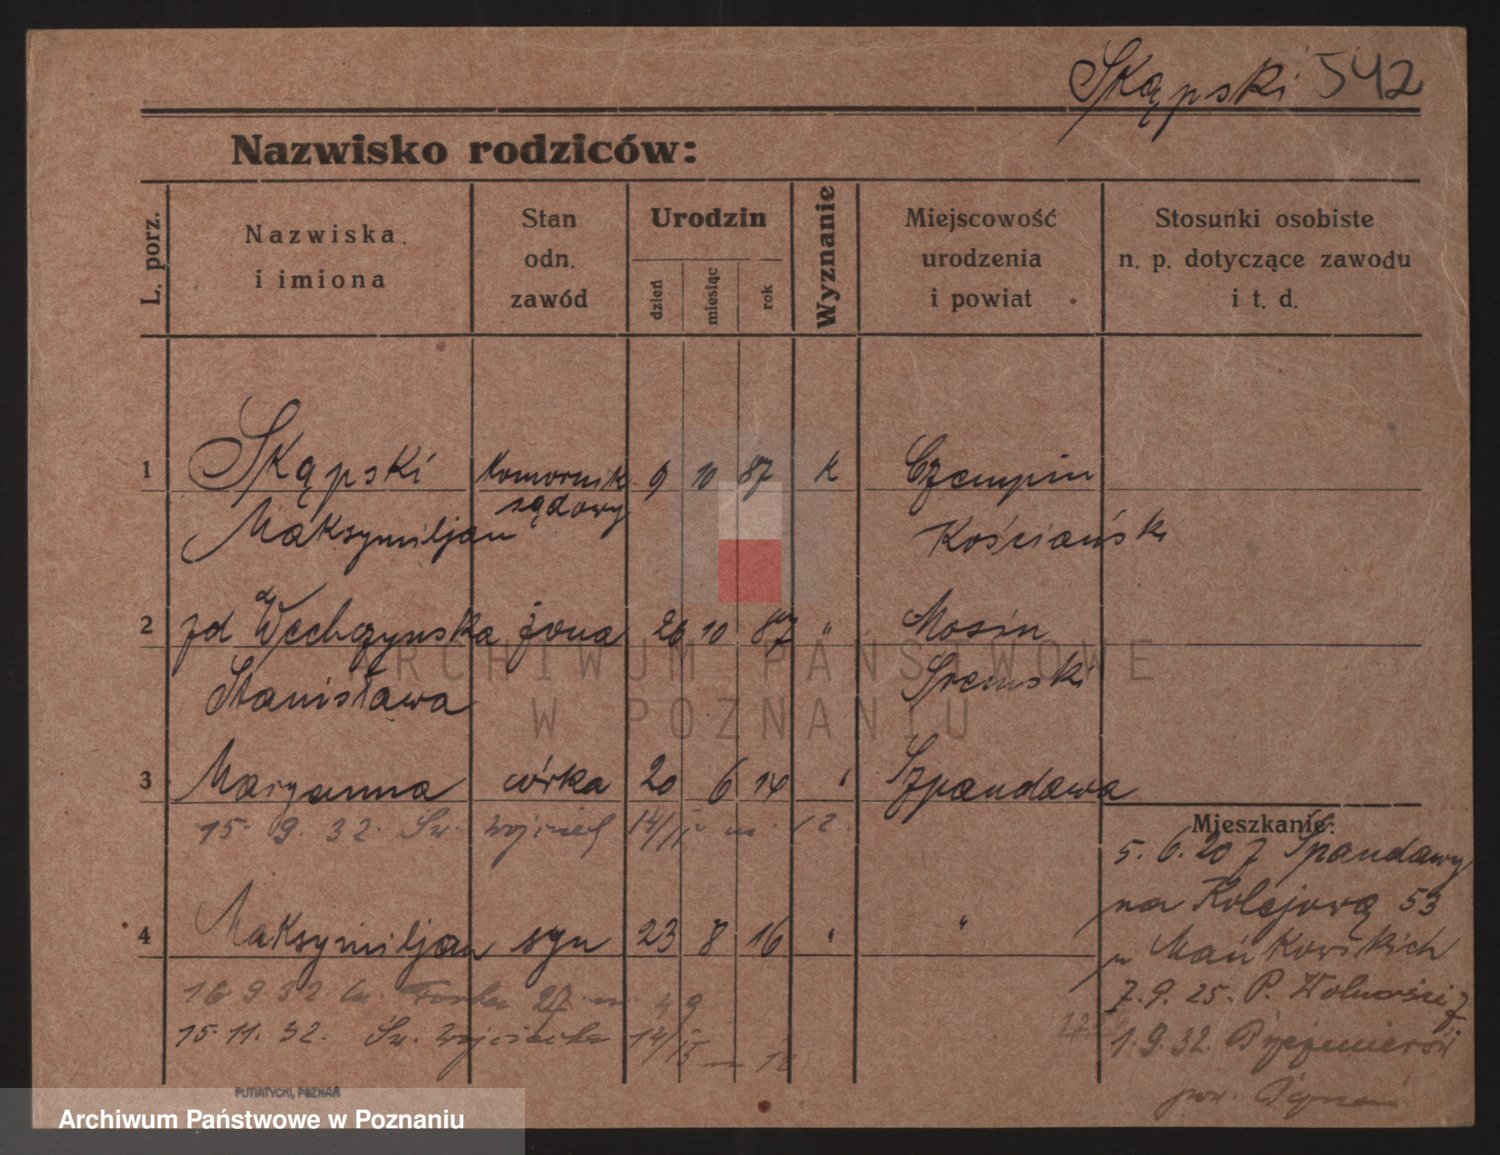 Skąpski 542
Nazwisko rodziców:
L. porz.
Nazwiska i imiona
Stan odn. zawód
Urodzin
dzień
miesiąc
rok
Wyznanie
Miejscowość urodzenia i powiat
Stosunki osobiste n. p. dotyczące zawodu i t. d.
1 Skąpski Komornik 9 10 87 k Czempin
Maksymiljan sądowy Kościańsk
2 zd Wechczynska żona 26 10 87 " Mosin
Stanisława Sremski
3 Maryanna córka 20 6 14 " Szpandawa
15. 9. 32. Św. Wojciech 14/15 m. 12.
Mieszkanie:
5. 6. 20 z Spandawy
na Kolejową 53
u Mańkowskich
4 Maksymiljan syn 23 8 16 " "
16.9.32. 27 m. 49
7.9.25. P. Wolności 7
15.11.32. Św. Wojciecha 14/15 m 12
1.9.32.
pow.
PUTIATYCKI, POZNAŃ
ARCHIWUM PAŃSTWOWE
W POZNANIU
Archiwum Państwowe w Poznaniu